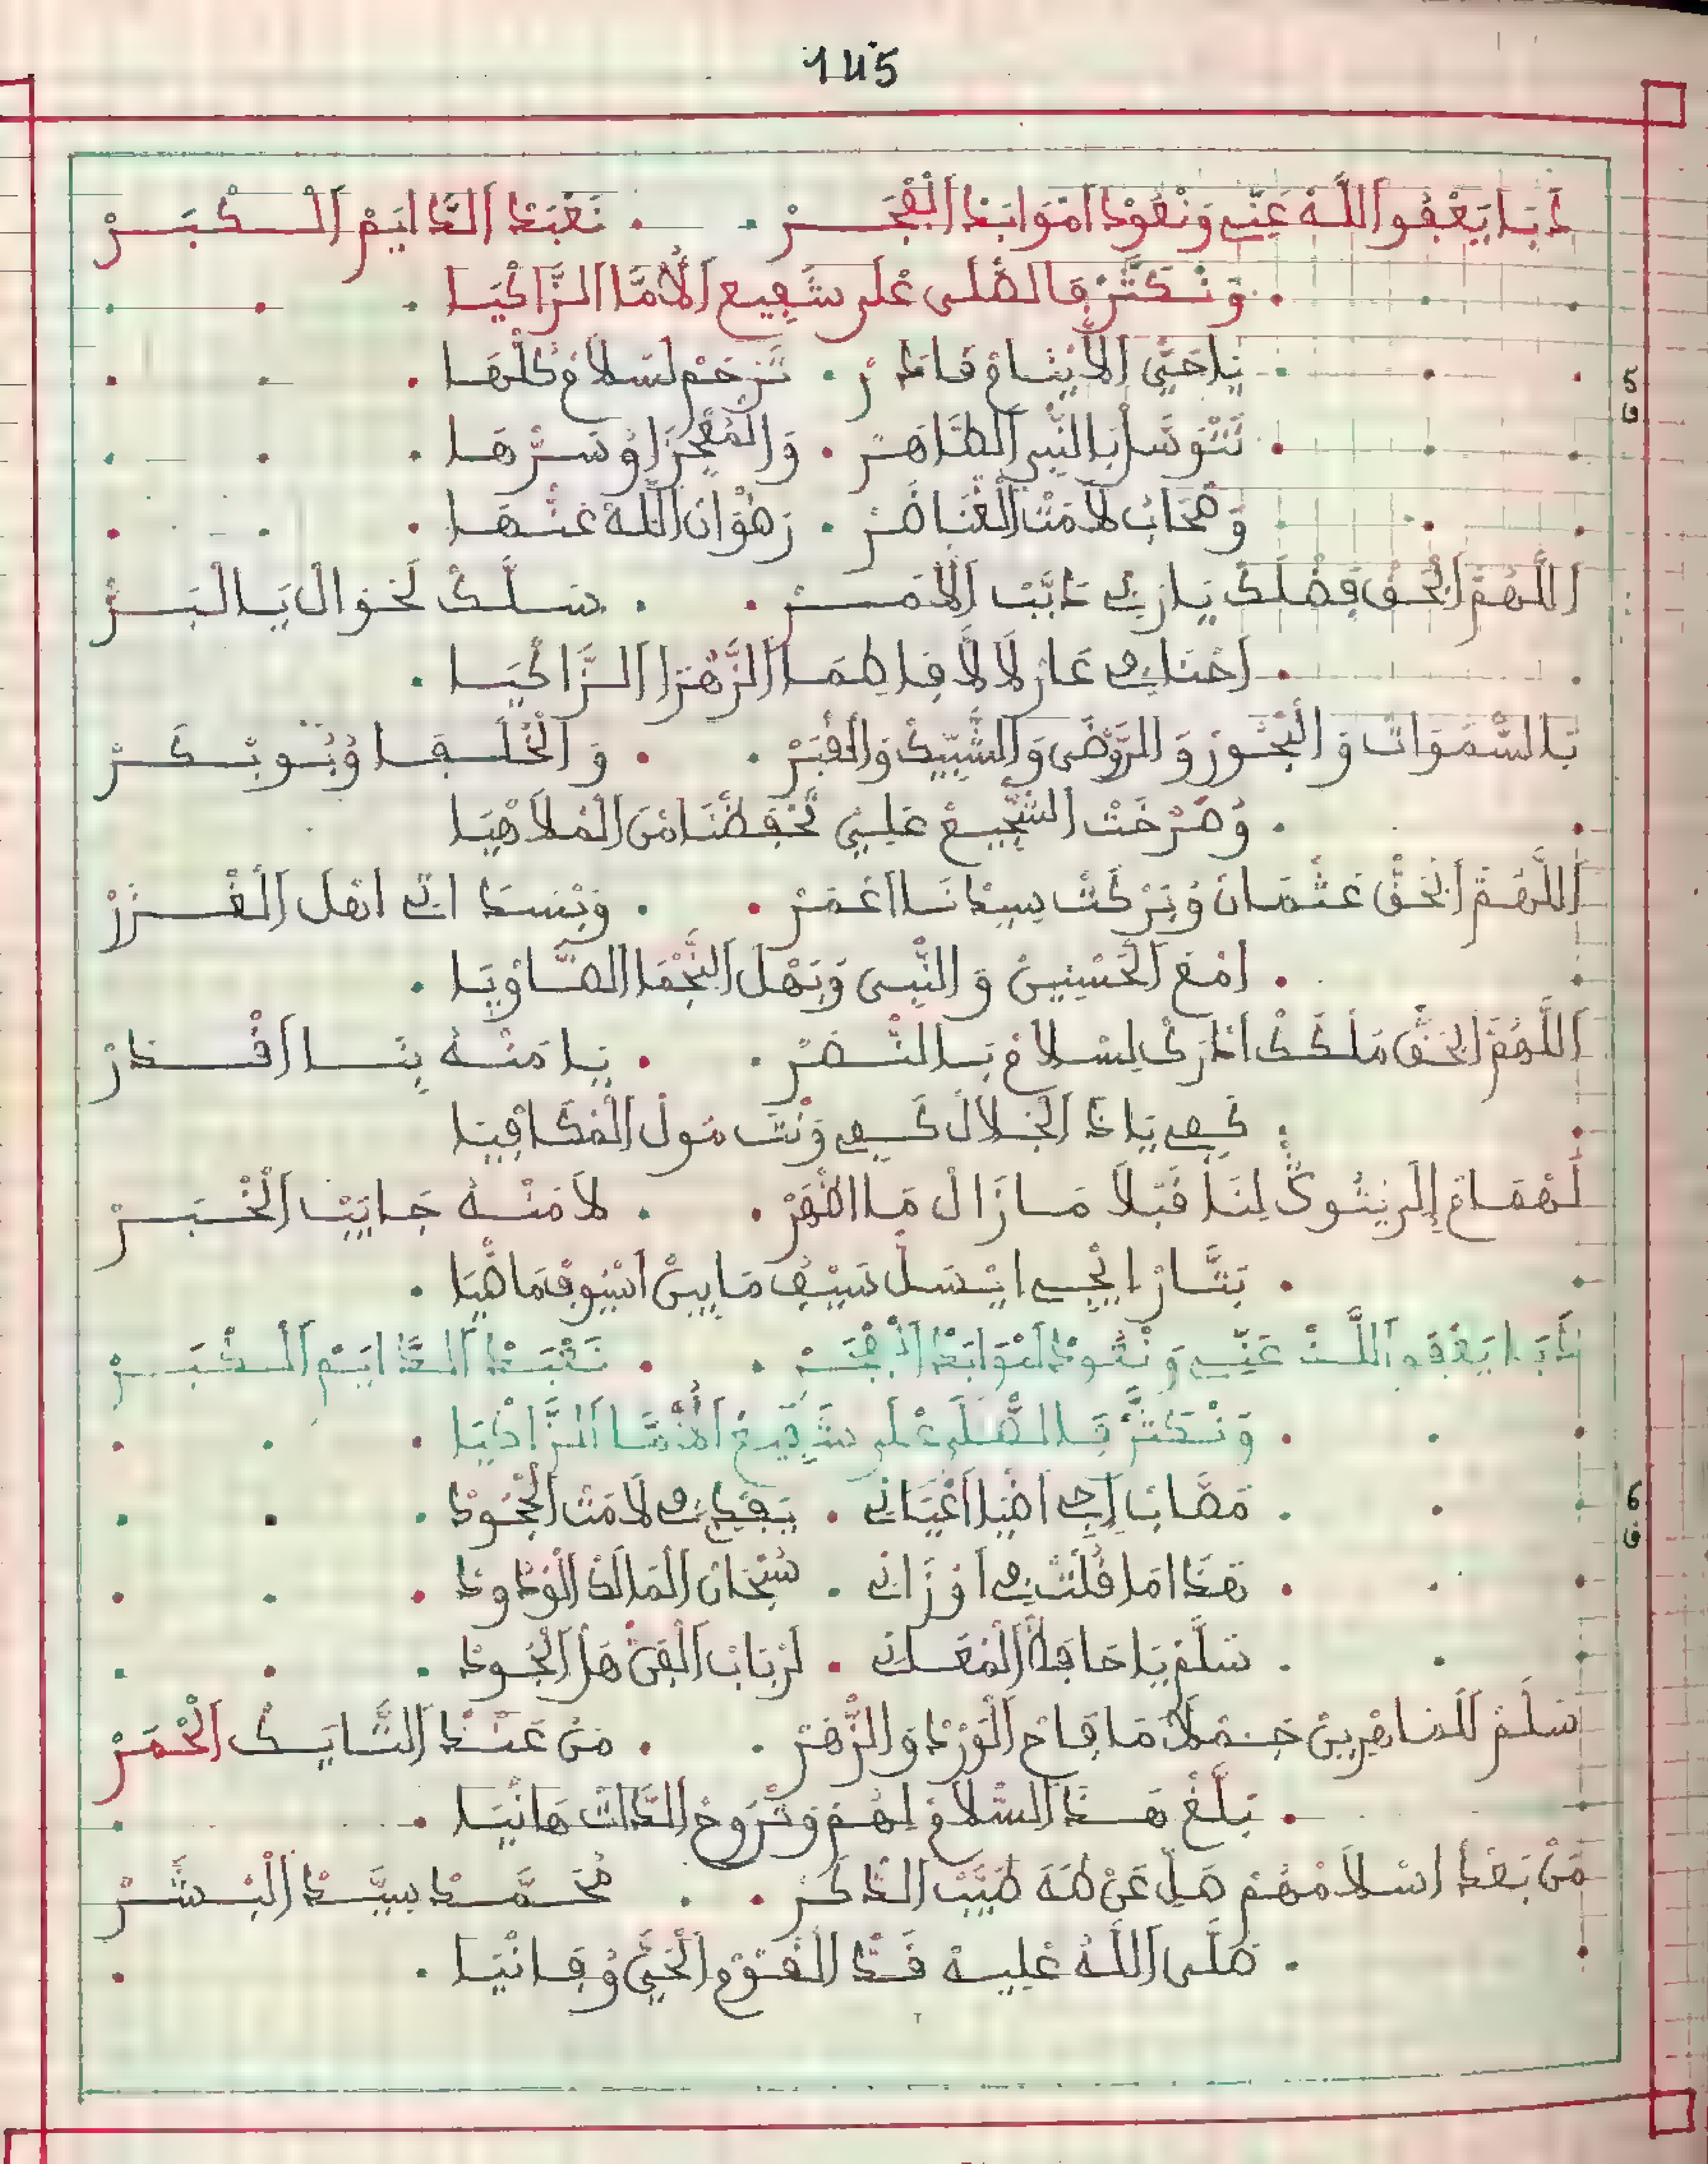 145
دَبَا يَعْفُو اَللَّهْ عَنِّي وَنْعُودْ اَمْوَابَدْ اَلْفْجَرْ . نَعْبَدْ اَلدَّايَمْ اَلْكْبَرْ
وَنْكَتَّرْ فَالصْلَى عْلَى شَفِيعْ اَلْأُمَّا اَلزَّاكْيَا
5
ف
يَاحَيِّي اَلْأَيْتَامْ قَادَرْ . تَرْحَمْ لَسْلَامْ كُلّْهَا
نَتْوَسَّلْ بَالنّْبِي اَلطَّاهَرْ . وَالْمُعْجِزَا وْسَرّْهَا
وَصْحَابْ لَامَتْ اَلْعْنَاصَرْ . رَضْوَانْ اَللَّهْ عَنْهَا
اَللَّهُمَّ اَلْحَقْ فَضْلَكْ يَارَبِّي دَبَّتْ اَلْأَمْرْ . سَلَّكْ لَحْوَالْ يَالْبَرّْ
اَحْنَا فِي عَارْ لَالَّا فَاطِمَا اَلزَّهْرَا اَلزَّاكْيَا
بَالسّْمَوَاتْ وَالْبْحُورْ وَالرَّوْضَى وَالشَّبِّيكْ وَالْقْبَرْ . وَالْخُلَفَا وْبُوبْكَرْ
وُصَرْخَتْ اَلشّْجِيعْ عَلِيِّي تَحْفَظْنَا مْنَ الْمْلَاهْيَا
اَللَّهُمَّ اَلْحَقْ عَثْمَانْ وُبَرْكَتْ سِيدْنَا اَعْمَرْ . وَبْسَدَاتِي اهْلَ اَلْغْزَرْ
امْعَ الْحَسْنِينْ وَالنّْبِى وَبَهْلَ النَّجْمَا الضَّاوْيَا
اَللَّهُمَّ اَلْحَقْ مَلَكَكْ اَدَرَكْ لِسْلَامْ بَالنّْصَرْ . يَا مَنْهُ بِنَا اَقْدَرْ
كَفِي يَاذَا اَلْجَلَالْ كَفِي وَنْتَ مُولْ اَلْمْكَافِيَا
لَهْمَامْ إِلَى يَنْوِي لِنَا قَبْلَا مَازَالْ مَا اظْهَرْ . لَامَنْهُ جَايَبْ اَلْخْبَرْ
بَتَّارْ ايْجِي ايْسَلْ سَيْفُ مَابِينْ اسْيُوفْ مَاضْيَا
دَبَا يَعْفُو اَللَّهْ عَنِّي وَنْعُودْ اَمْوَابَدْ اَلْفْجَرْ . نَعْبَدْ اَلدَّايَمْ اَلْكْبَرْ
وَنْكَتَّرْ فَالصْلَى عْلَى شَفِيعْ اَلْأُمَّا اَلزَّاكْيَا
6
ف
مَصَّابْ إِجِي اضْيَا اَعْيَانِي . يَفْدِينِي لَامَتْ اَلْجْحُودْ
هَذَا مَا قُلْتْ فِي اَوْزَانِي . سُبْحَانْ اَلْمَالَكْ اَلْوَدُودْ
سَلَّمْ يَاحَافَظْ اَلْمْعَانِي . لَرْبَابْ اَلْفَنّْ هَلْ اَلْجُودْ
سَلَّمْ لَلْمَاهْرِينْ جَمْلَا مَا فَاحْ اَلْوَرْدْ وَالزّْهَرْ . مَنْ عَنْدْ التَّايَكْ اَلْحْمَرْ
بَلَّغْ هَذَا السّْلَامْ لِهُمْ وَتْرَوَّحْ الدَّاتْ هَانْيَا
مَنْ بَعْدْ اسْلَامْهُمْ صَلِّ عَنْ طَهَ طَيَّبْ الذّْكَرْ . مُحَمَّدْ سِيَّدْ الْبْشَرْ
صَلَّى اَللَّهُ عْلِيهْ قَدّْ اَلْقَوْمْ اَلْحَيَّ وْفَانْيَا